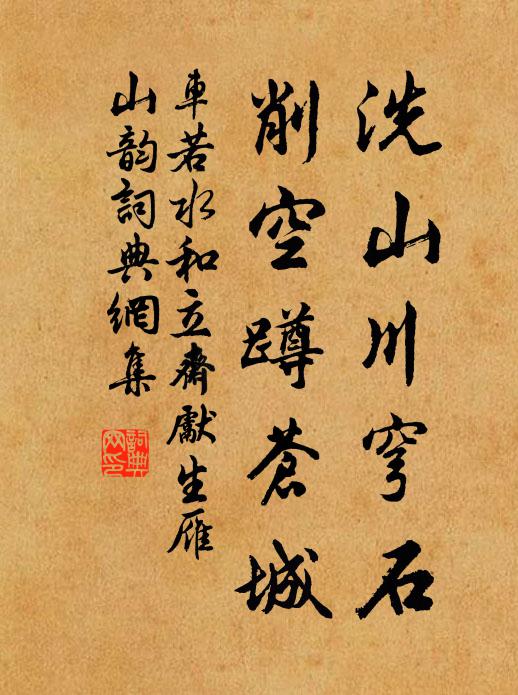 洗山川穹石
削空蹲蒼城
車若水和立齋獻生雁
山韵詞典網集
詞典網印